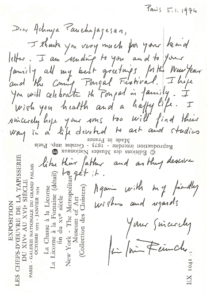 Paris 5.1.1974
Dear Acharya Panchapagesan,
I thank you very much for your kind
letter. I am sending to you and to your
family all my best greetings for the New Year
and the coming Pongal Festival. I hope
you will celebrate the Pongal in family. I
wish you health and a happy life. I
sincerely hope your sons too will find their
way in a life devoted to art and studies
like their father and as they deserve
to get it.
Again with my friendly
wishes and regards
Yours sincerely
EXPOSITION
LES CHEFS-D'ŒUVRE DE LA TAPISSERIE
DU XIVe AU XVIe SIÈCLE
PARIS - GALERIES NATIONALES DU GRAND PALAIS
OCTOBRE 1973 - JANVIER 1974
La Chasse à la Licorne
La Licorne à la Fontaine (détail)
fin du XVe siècle
New York - The Metropolitan
Museum of Art
(Collection des Cloisters)
© Éditions des Musées Nationaux
Reproduction interdite - 1973 - Paris
Made in France
EX 1041